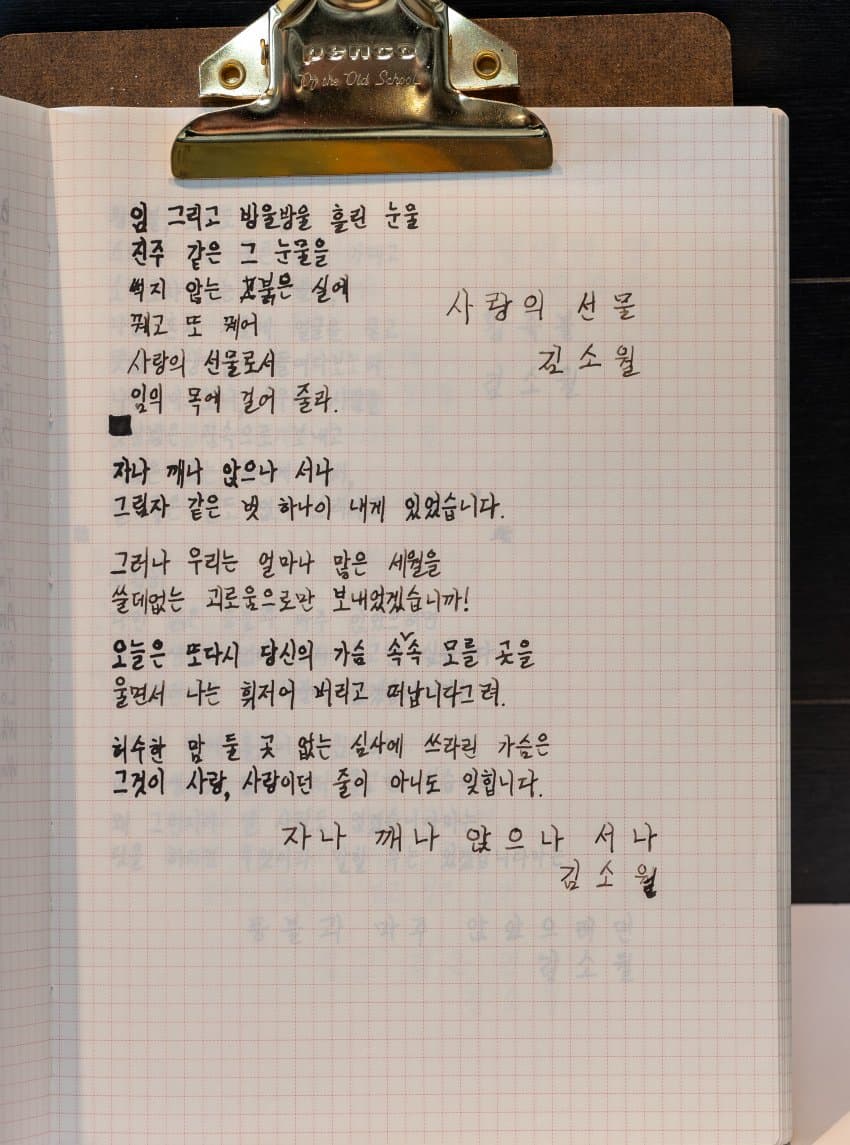 PENCO
Of the Old School
임 그리고 방울방울 흘린 눈물
진주 같은 그 눈물을
썩지 않는 붉은 실에
꿰고 또 꿰어
사랑의 선물로서
임의 목에 걸어 줄라.
사랑의 선물
김소월
자나 깨나 앉으나 서나
그림자 같은 벗 하나이 내게 있었습니다.
그러나 우리는 얼마나 많은 세월을
쓸데없는 괴로움으로만 보내었겠습니까!
오늘은 또다시 당신의 가슴 속속 모를 곳을
울면서 나는 휘저어 버리고 떠납니다그려.
허수한 맘 둘 곳 없는 심사에 쓰라린 가슴은
그것이 사랑, 사랑이던 줄이 아니도 잊힙니다.
자나 깨나 앉으나 서나
김소월